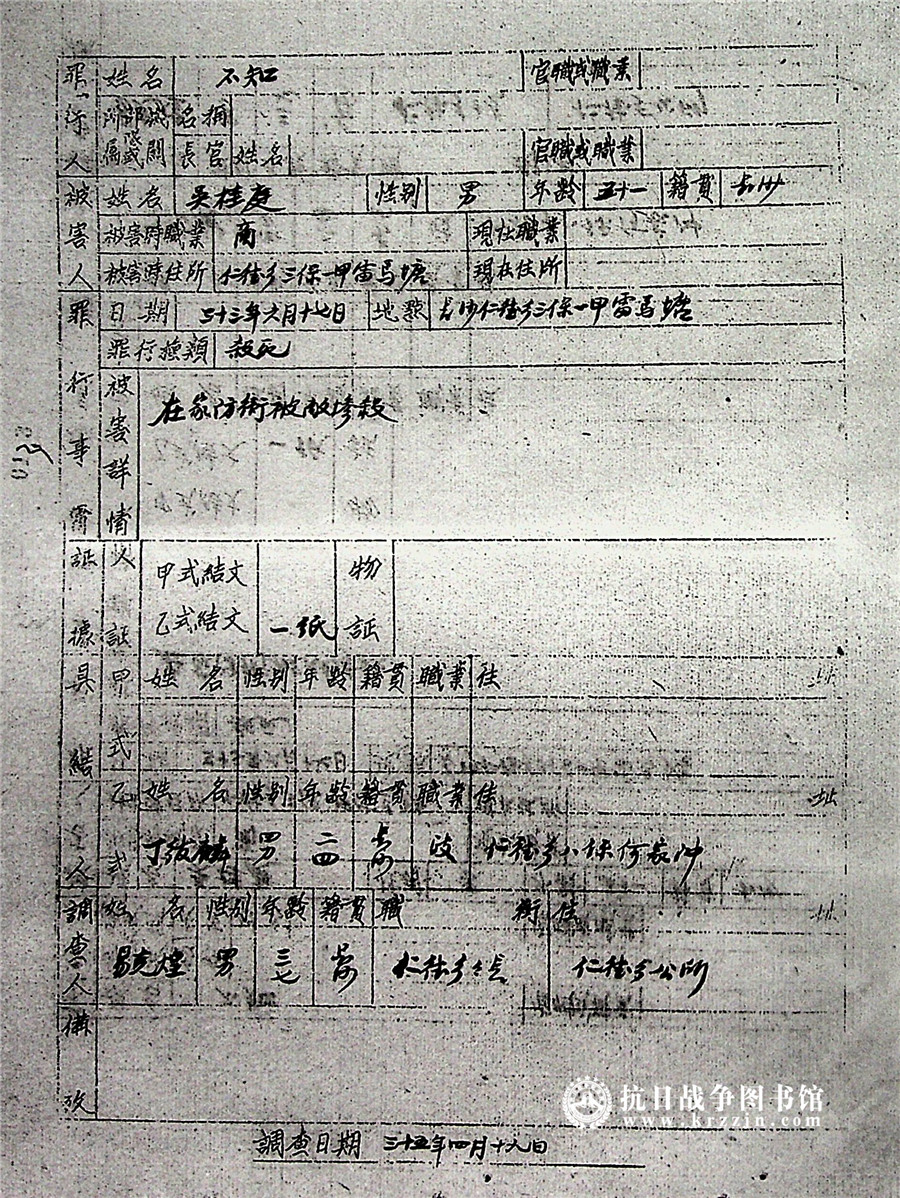 罪行人 姓名 不知 官職或職業
所屬部隊或機關 名稱
長官 姓名 官職或職業
被害人 姓名 吳桂庭 性别 男 年龄 五十一 籍貫 長沙
被害時職業 商 現在職業
被害時住所 仁德乡三保一甲雷馬塘 現在住所
罪行事實 日期 三十三年六月十七日 地點 長沙仁德乡三保一甲雷馬塘
罪行種類 殺死
被害詳情 在家防衛被敵慘殺
証據 人証 甲式結文 物証
乙式結文 一紙
具結人 甲式 姓名 性别 年龄 籍貫 職業 住址
乙式 姓名 性别 年龄 籍貫 職業 住址
丁 男 二四 長沙 政 仁德乡八保何家冲
調查人 姓名 性别 年龄 籍貫 職銜 住址
易克煌 男 三七 長沙 仁德乡乡長 仁德乡公所
備攷
調查日期 三十五年四月十八日
抗日战争图书馆
www.krzzjn.com